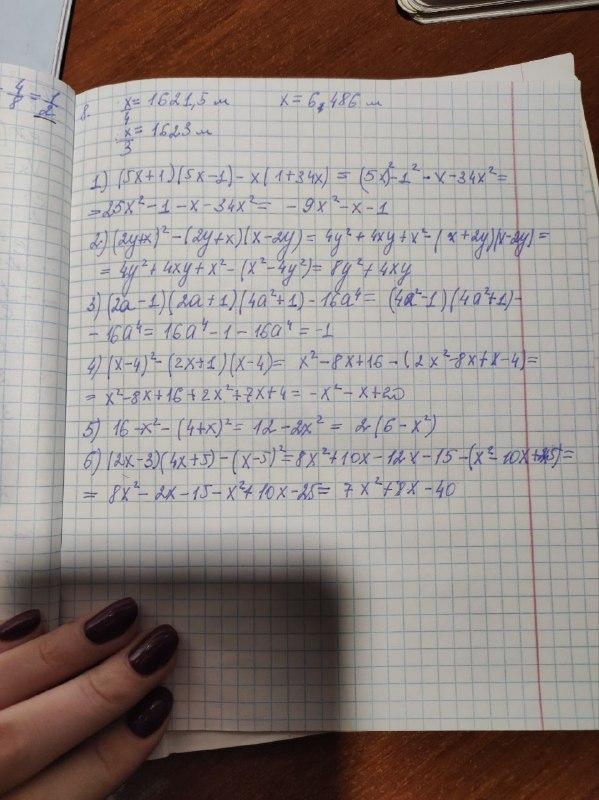 4/8 = 1/2
8. x/4 = 1621,5 м x = 6,486 м
x/3 = 1623 м
1) (5x+1)(5x-1)-x(1+34x) = (5x)²-1²-x-34x² =
= 25x²-1-x-34x² = -9x²-x-1
2) (2y+x)²-(2y+x)(x-2y) = 4y²+4xy+x²-(x+2y)(x-2y) =
= 4y²+4xy+x²-(x²-4y²) = 8y²+4xy
3) (2a-1)(2a+1)(4a²+1)-16a⁴ = (4a²-1)(4a²+1)-
-16a⁴ = 16a⁴-1-16a⁴ = -1
4) (x-4)²-(2x+1)(x-4) = x²-8x+16-(2x²-8x+x-4) =
= x²-8x+16+2x²+7x+4 = -x²-x+20
5) 16-x²-(4+x)² = 12-2x² = 2(6-x²)
6) (2x-3)(4x+5)-(x-5)² = 8x²+10x-12x-15-(x²-10x+25) =
= 8x²-2x-15-x²+10x-25 = 7x²+8x-40